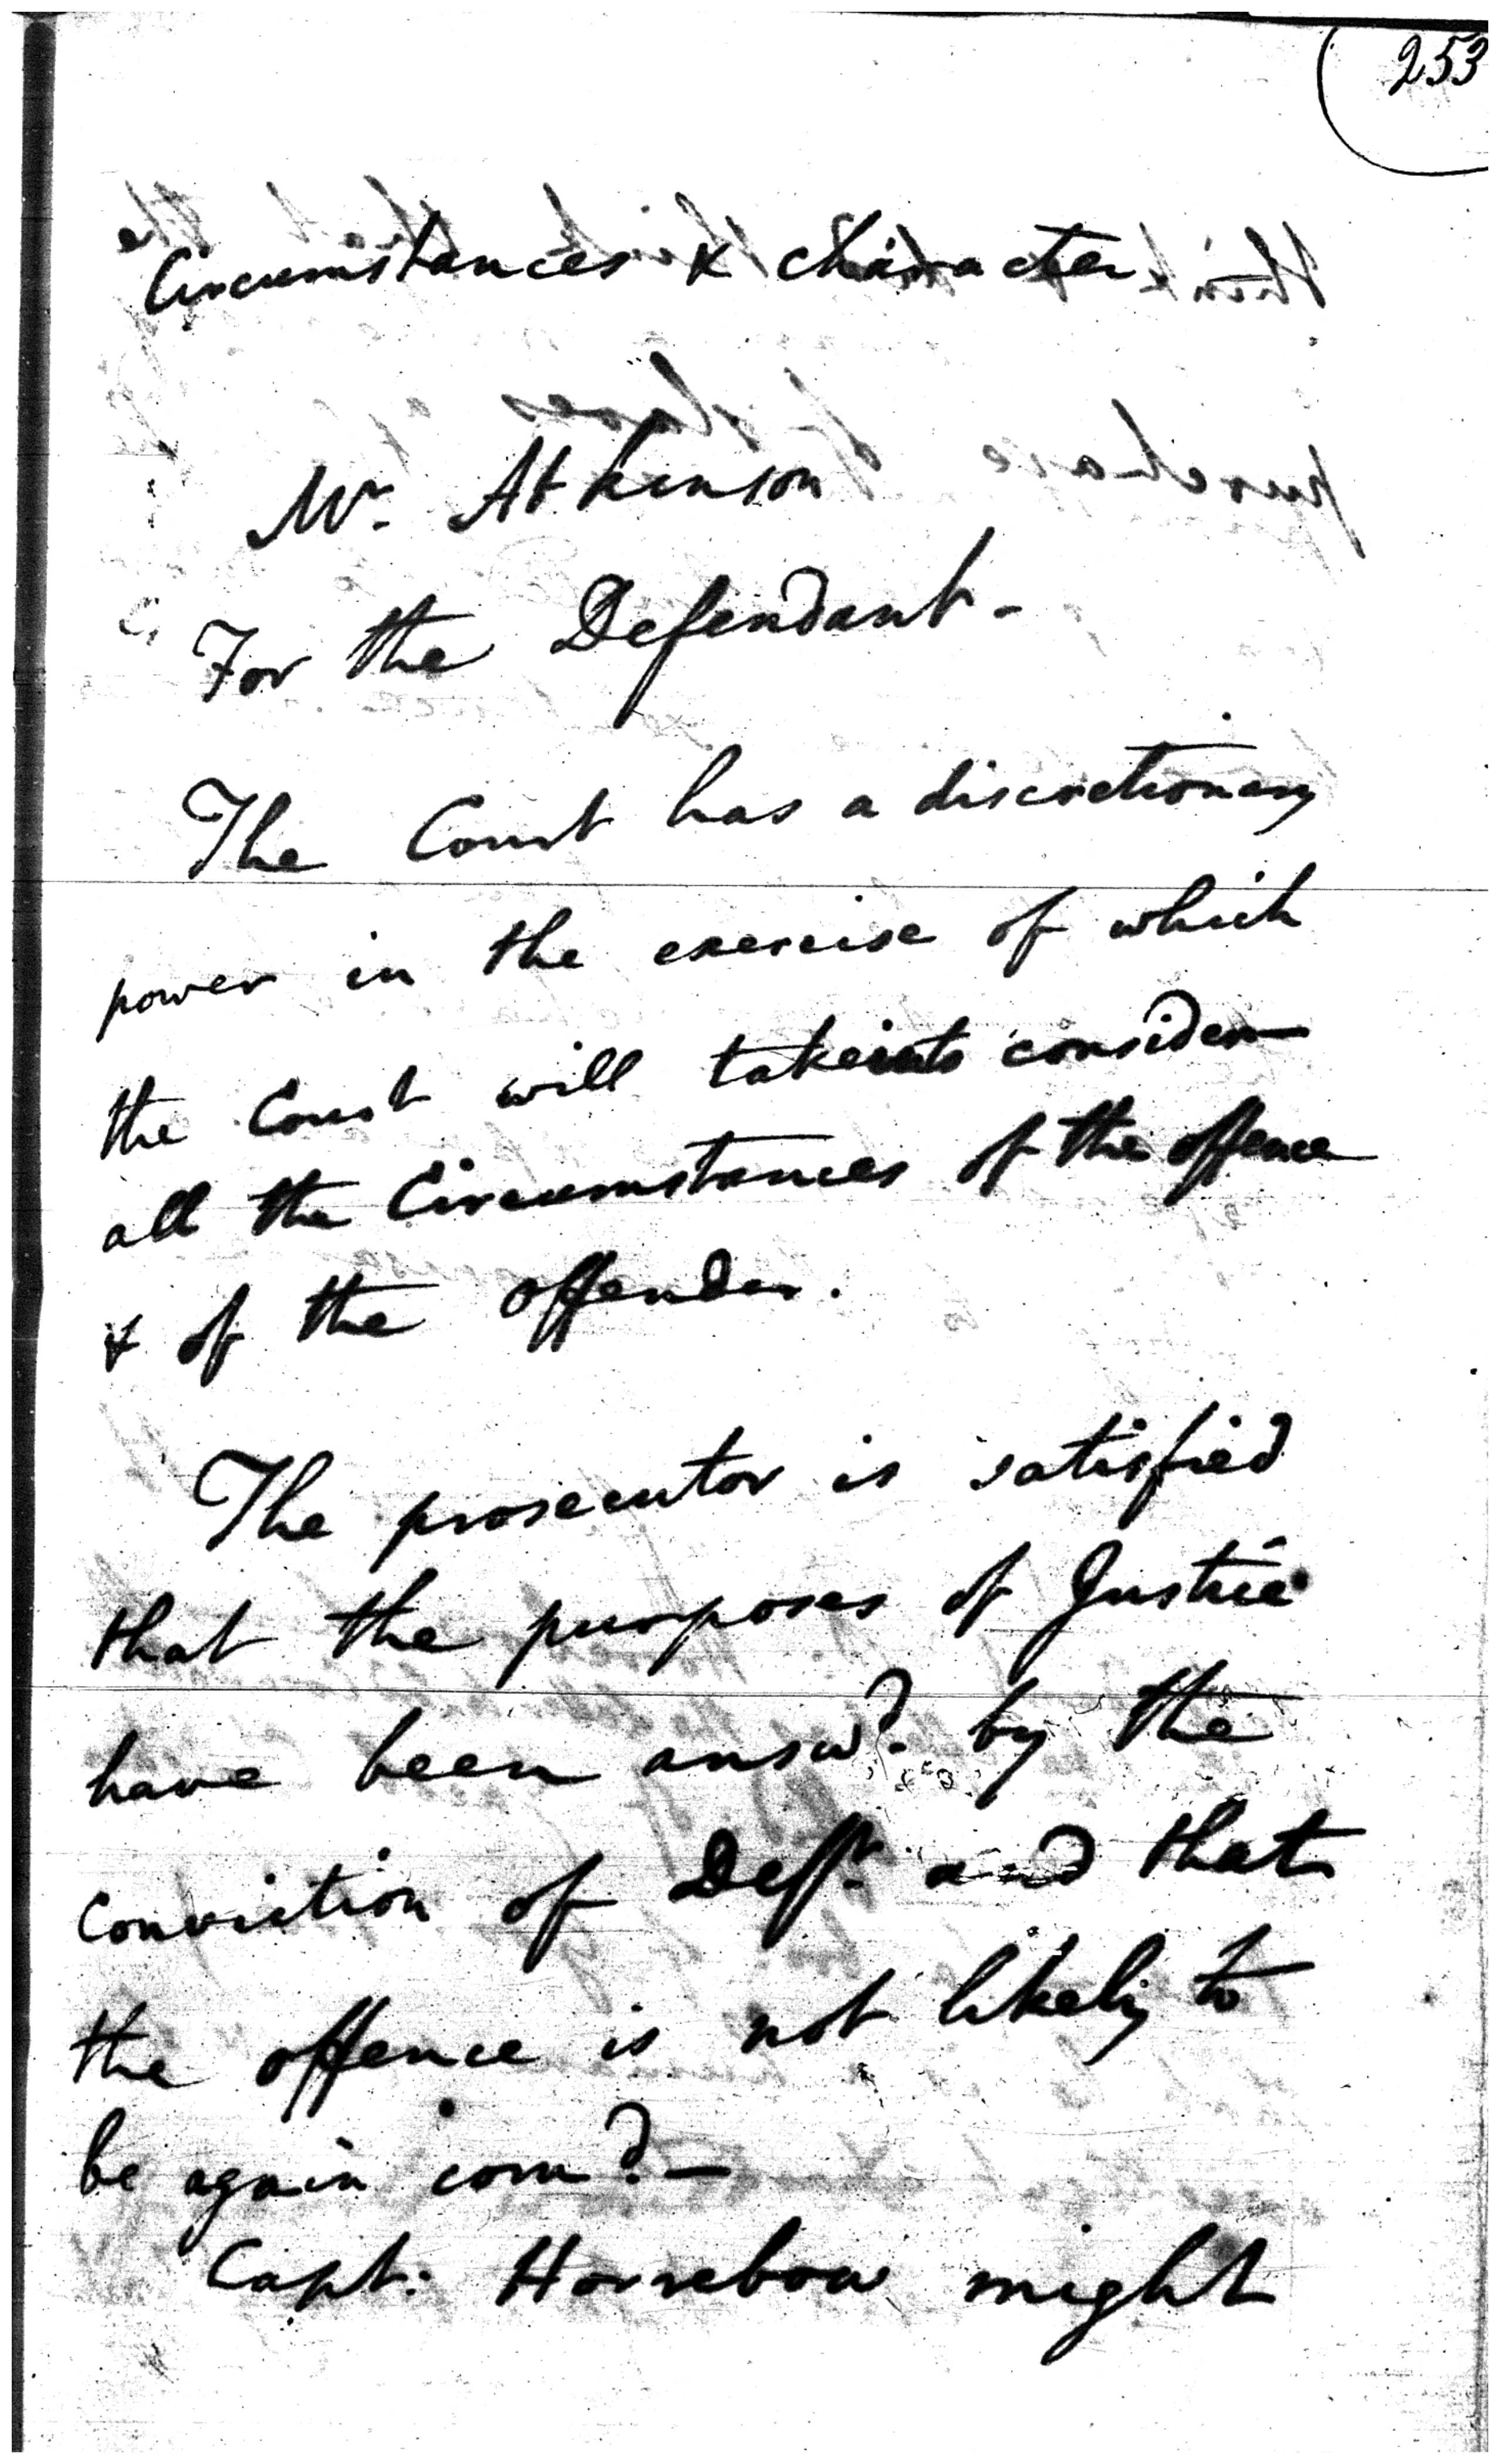 253
Circumstances & character.
Mr. Atkinson
For the Defendant -
The Court has a discretionary
power in the exercise of which
the Court will take into consider
all the Circumstances of the offence
& of the offender.
The prosecutor is satisfied
that the purposes of Justice
have been answd. by the
Conviction of Deft. and that
the offence is not likely to
be again comd. —
Capt: Horrebow might